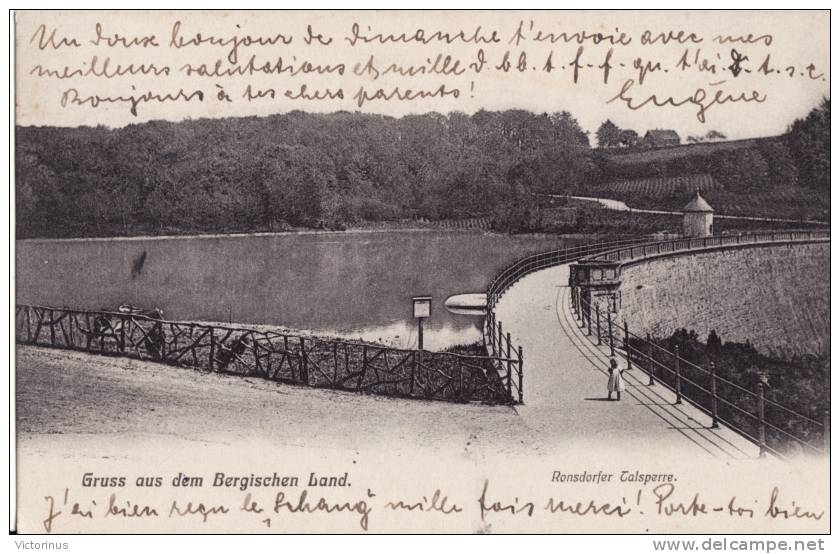 Un doux bonjour de dimanche t'envoie avec mes
meilleurs salutations et mille d. bb. t. f-f- qu. t'ai d. t. s. c.
Bonjours à tes chers parents!
Eugène
Gruss aus dem Bergischen Land.
Ronsdorfer Talsperre.
J'ai bien reçu le "Schang" mille fois merci! Porte-toi bien
Victorinus
www.delcampe.net